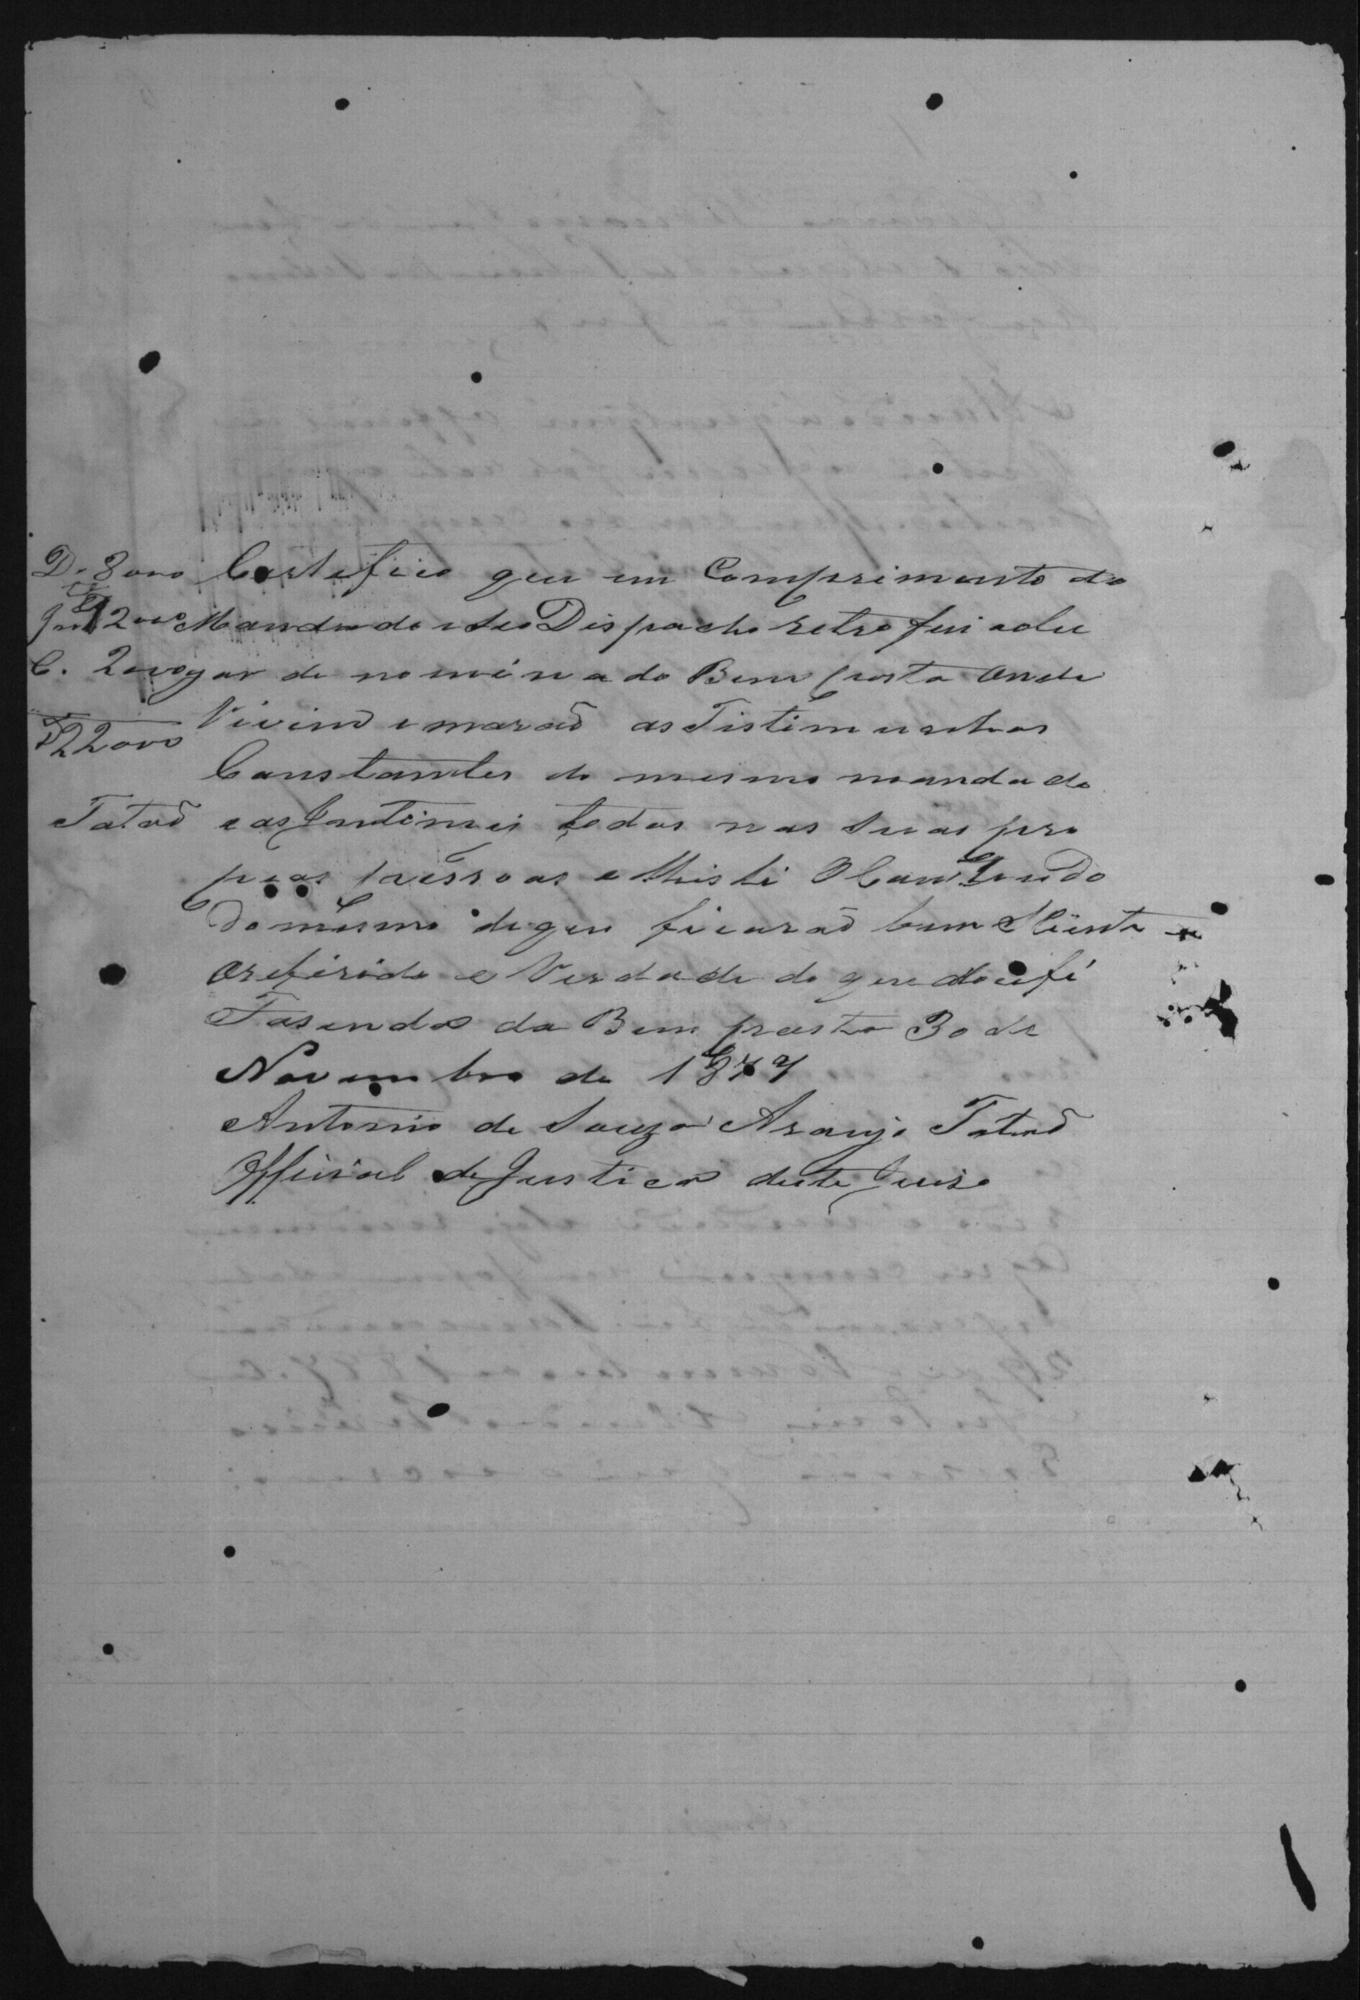 D. 8000 Certefico que em Comprimento do
Int 12000 Mandado e seu Dispacho retro fui aolu
C. 2000 gar de nominado Bem posta onde
22000 Vivem e moraõ as Tistimunhas
Constantes do mesmo mandado
Tataõ e as Intimei todas nas suas pro
pias pessoas e lhis li
do mesmo de que ficaraõ bem Sciente
o referido e Verdade do que dou fé
Fasendas da Bem posta 30 de
Novembro de 1877
Antonio de Souza Araujo Tataõ
Official de Justica deste Juiso